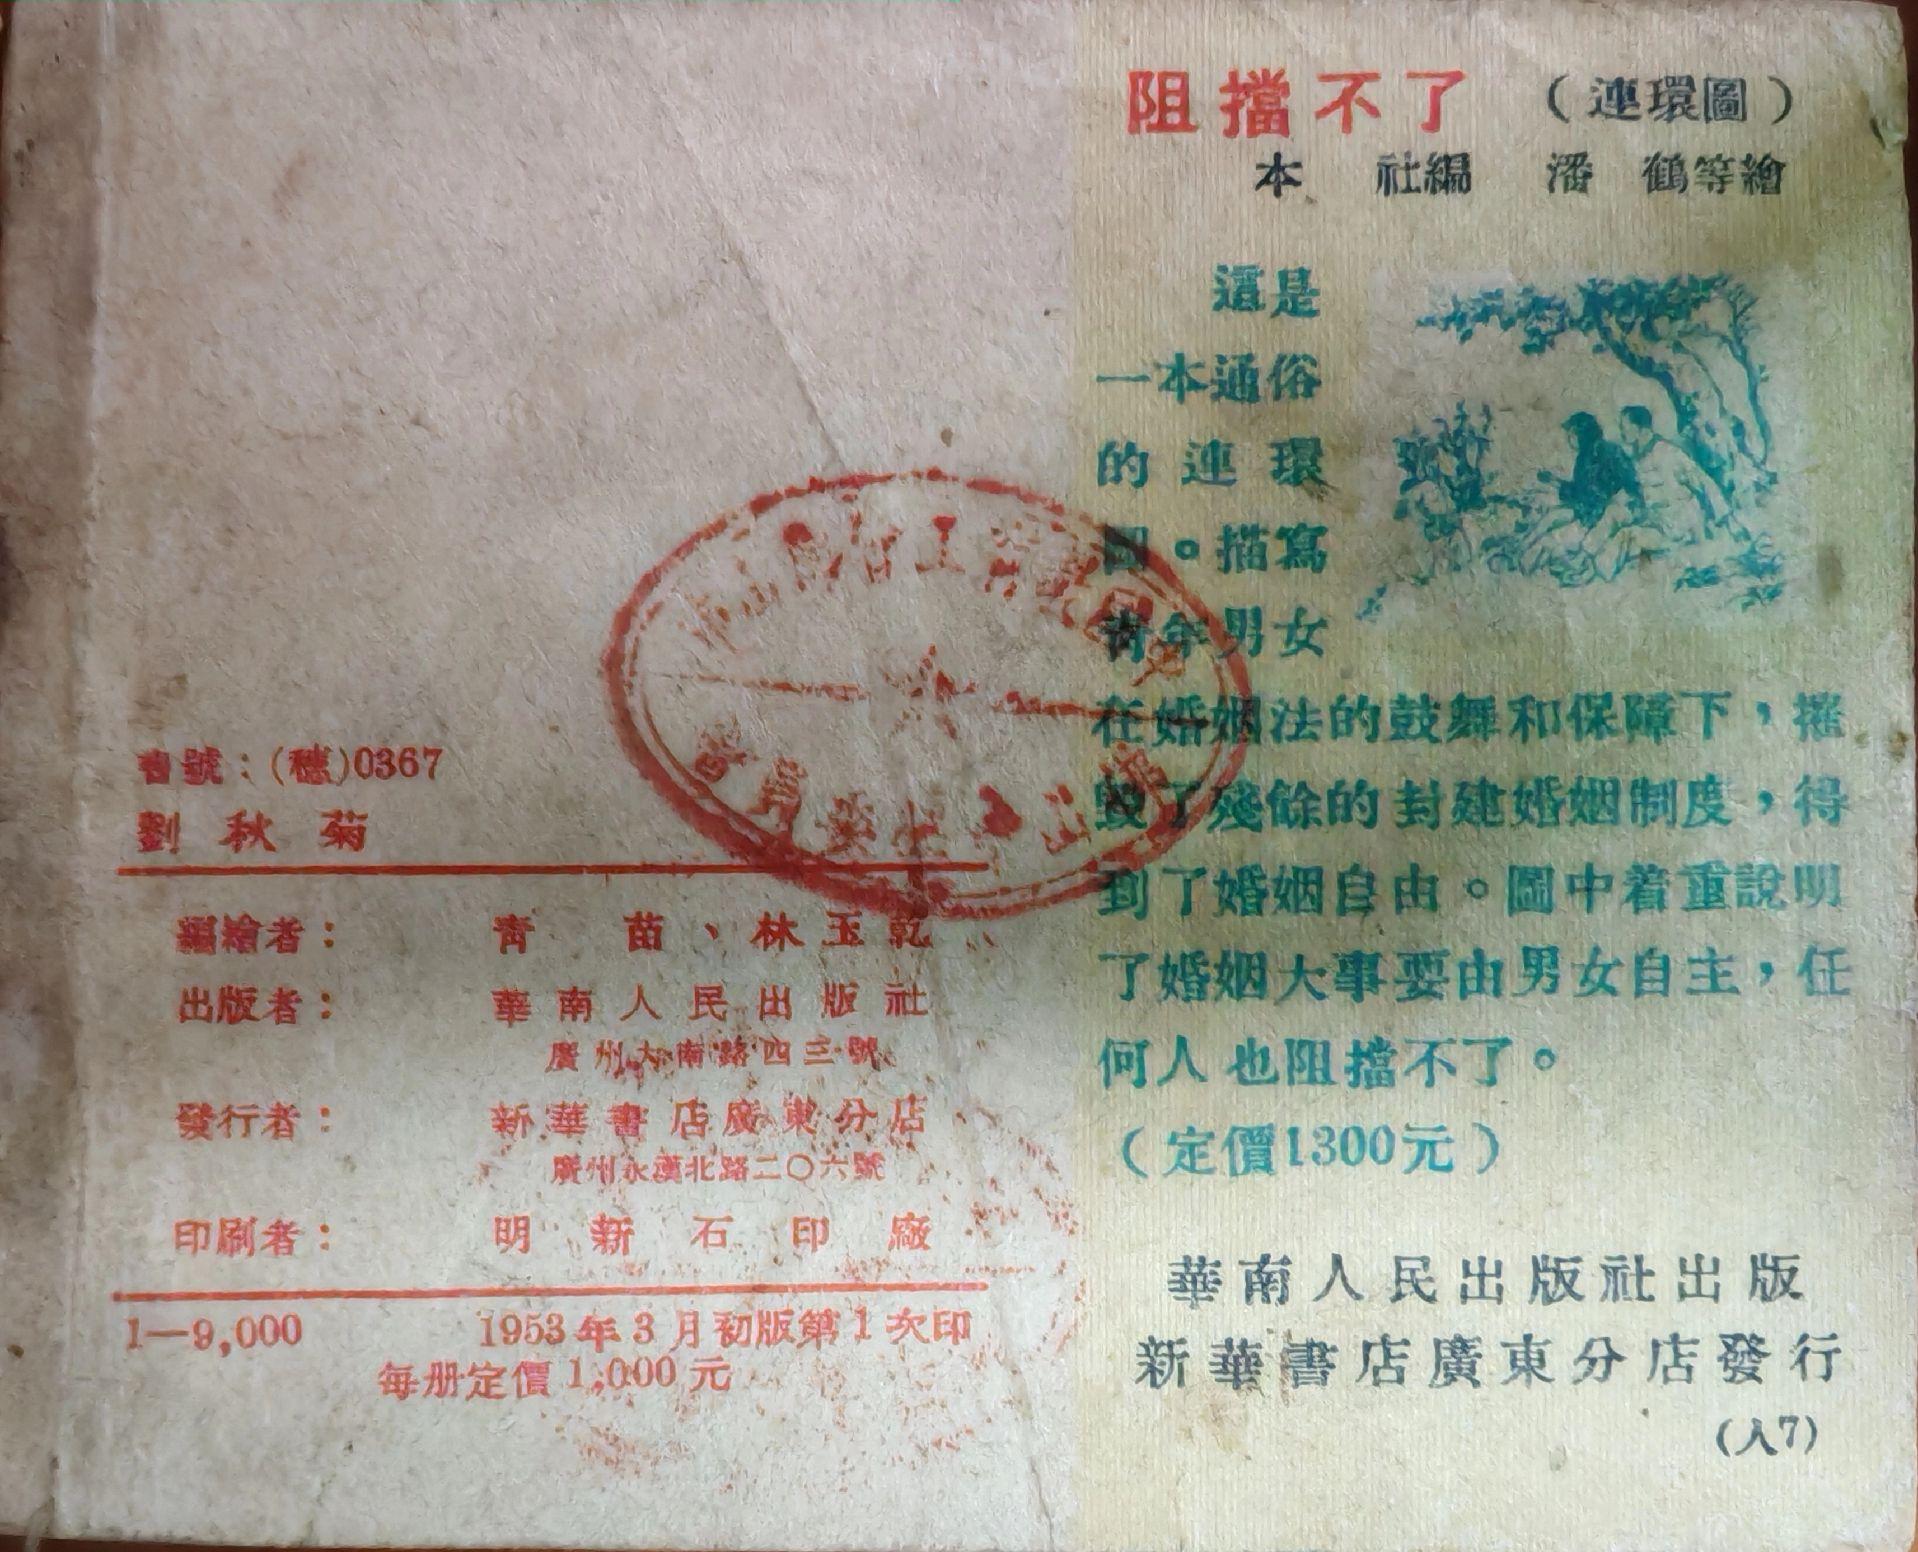 書號：(穗)0367
劉秋菊
編繪者：青苗、林玉乾
出版者：華南人民出版社
廣州大南路四三號
發行者：新華書店廣東分店
廣州永漢北路二〇六號
印刷者：明新石印廠
1—9,000 1953年3月初版第1次印
每册定價1,000元
阻擋不了（連環圖）
本社編 潘鶴等繪
這是
一本通俗
的連環
圖。描寫
青年男女
在婚姻法的鼓舞和保障下，摧
毀了殘餘的封建婚姻制度，得
到了婚姻自由。圖中着重說明
了婚姻大事要由男女自主，任
何人也阻擋不了。
（定價1300元）
華南人民出版社出版
新華書店廣東分店發行
(人7)